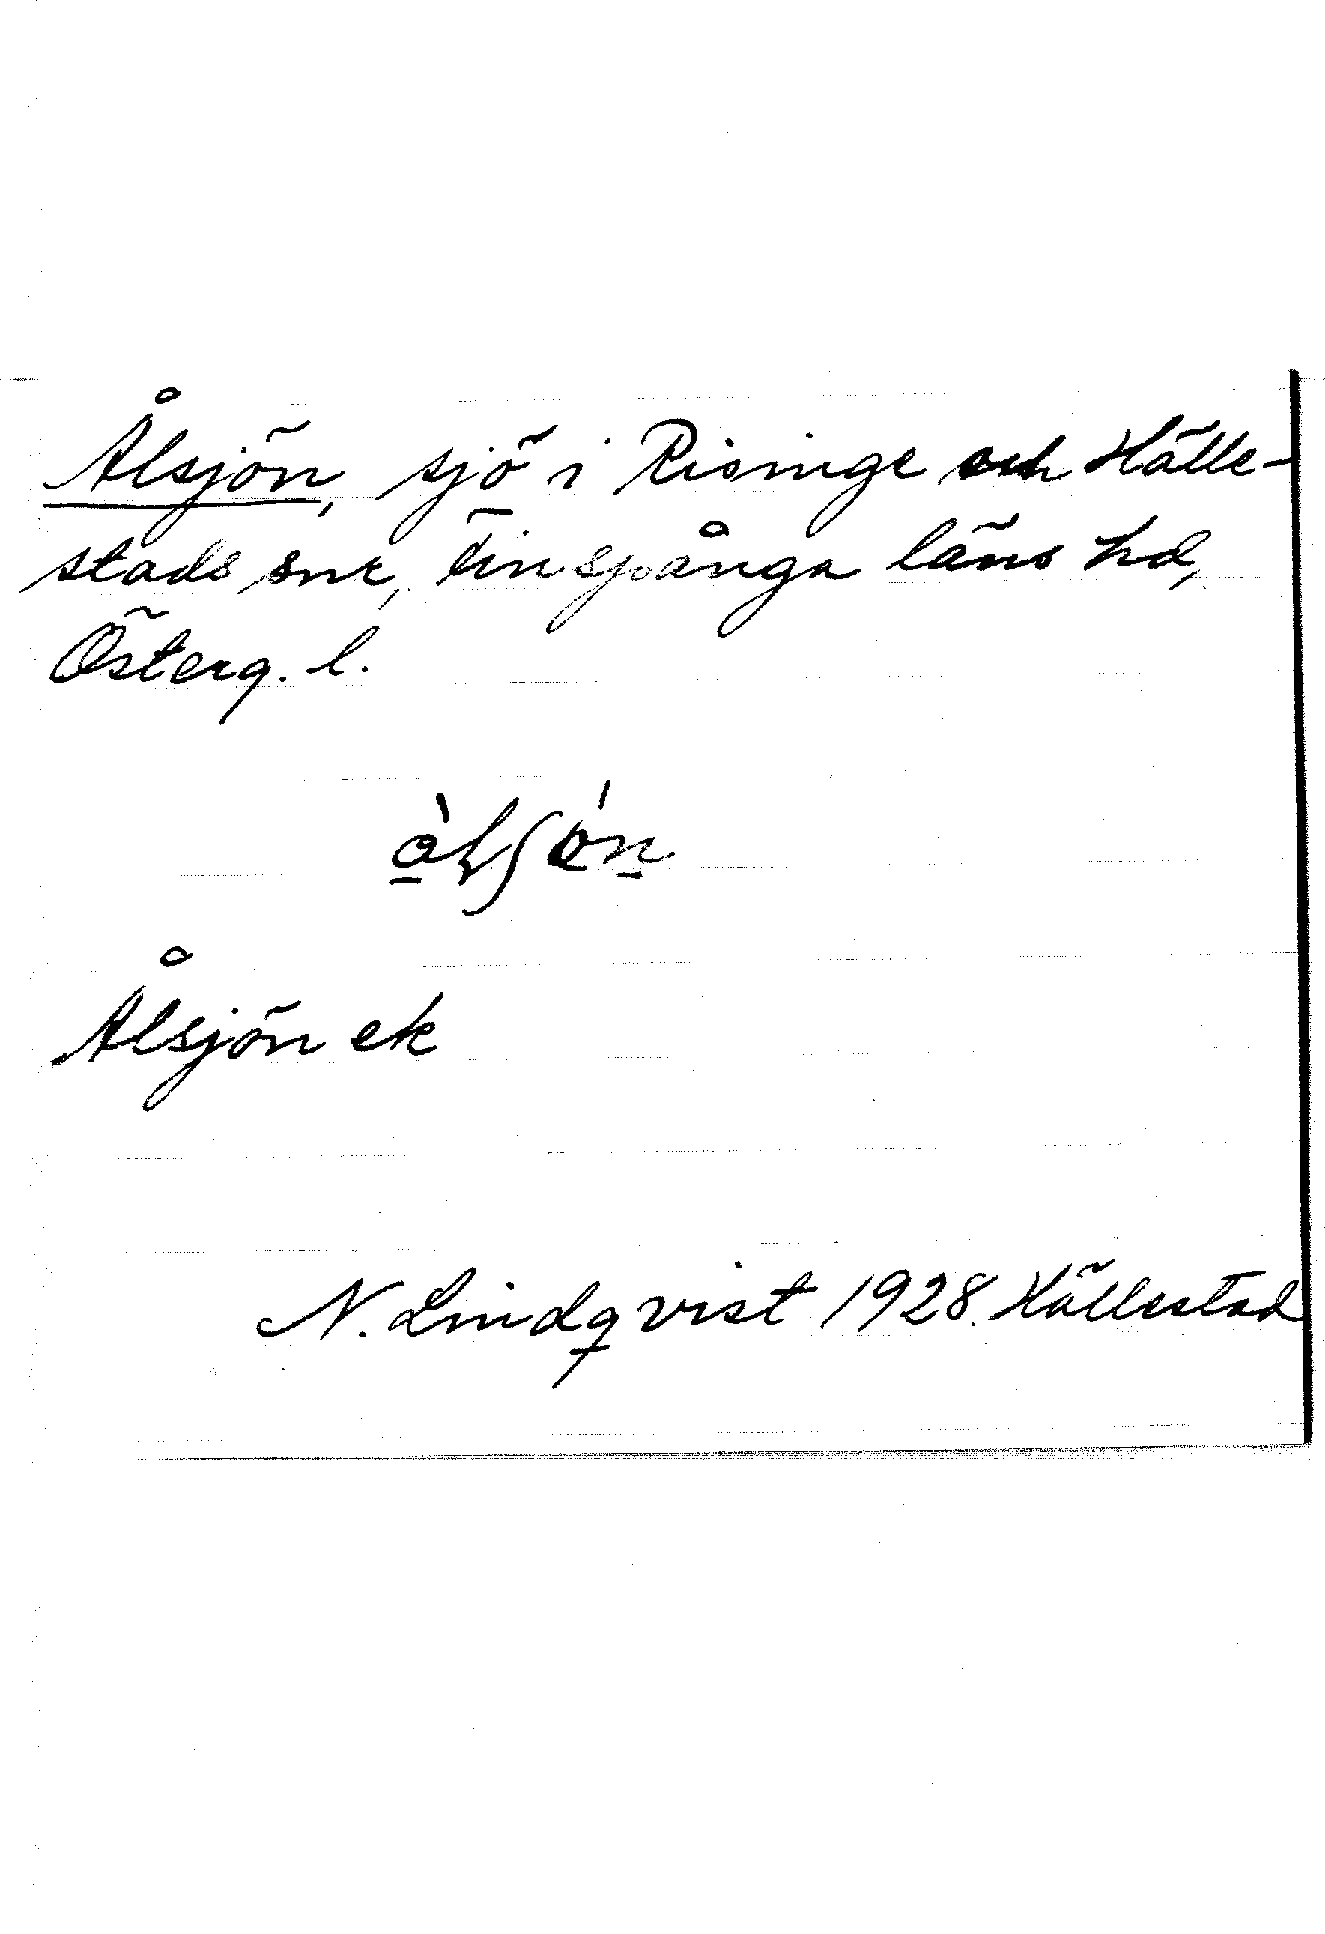 Ålsjön, sjö i Risinge och Hälle-
stads snr, Finspånga läns hd,
Österg. l.
Ålsjön ek
N. Lindqvist 1928. Hällestad